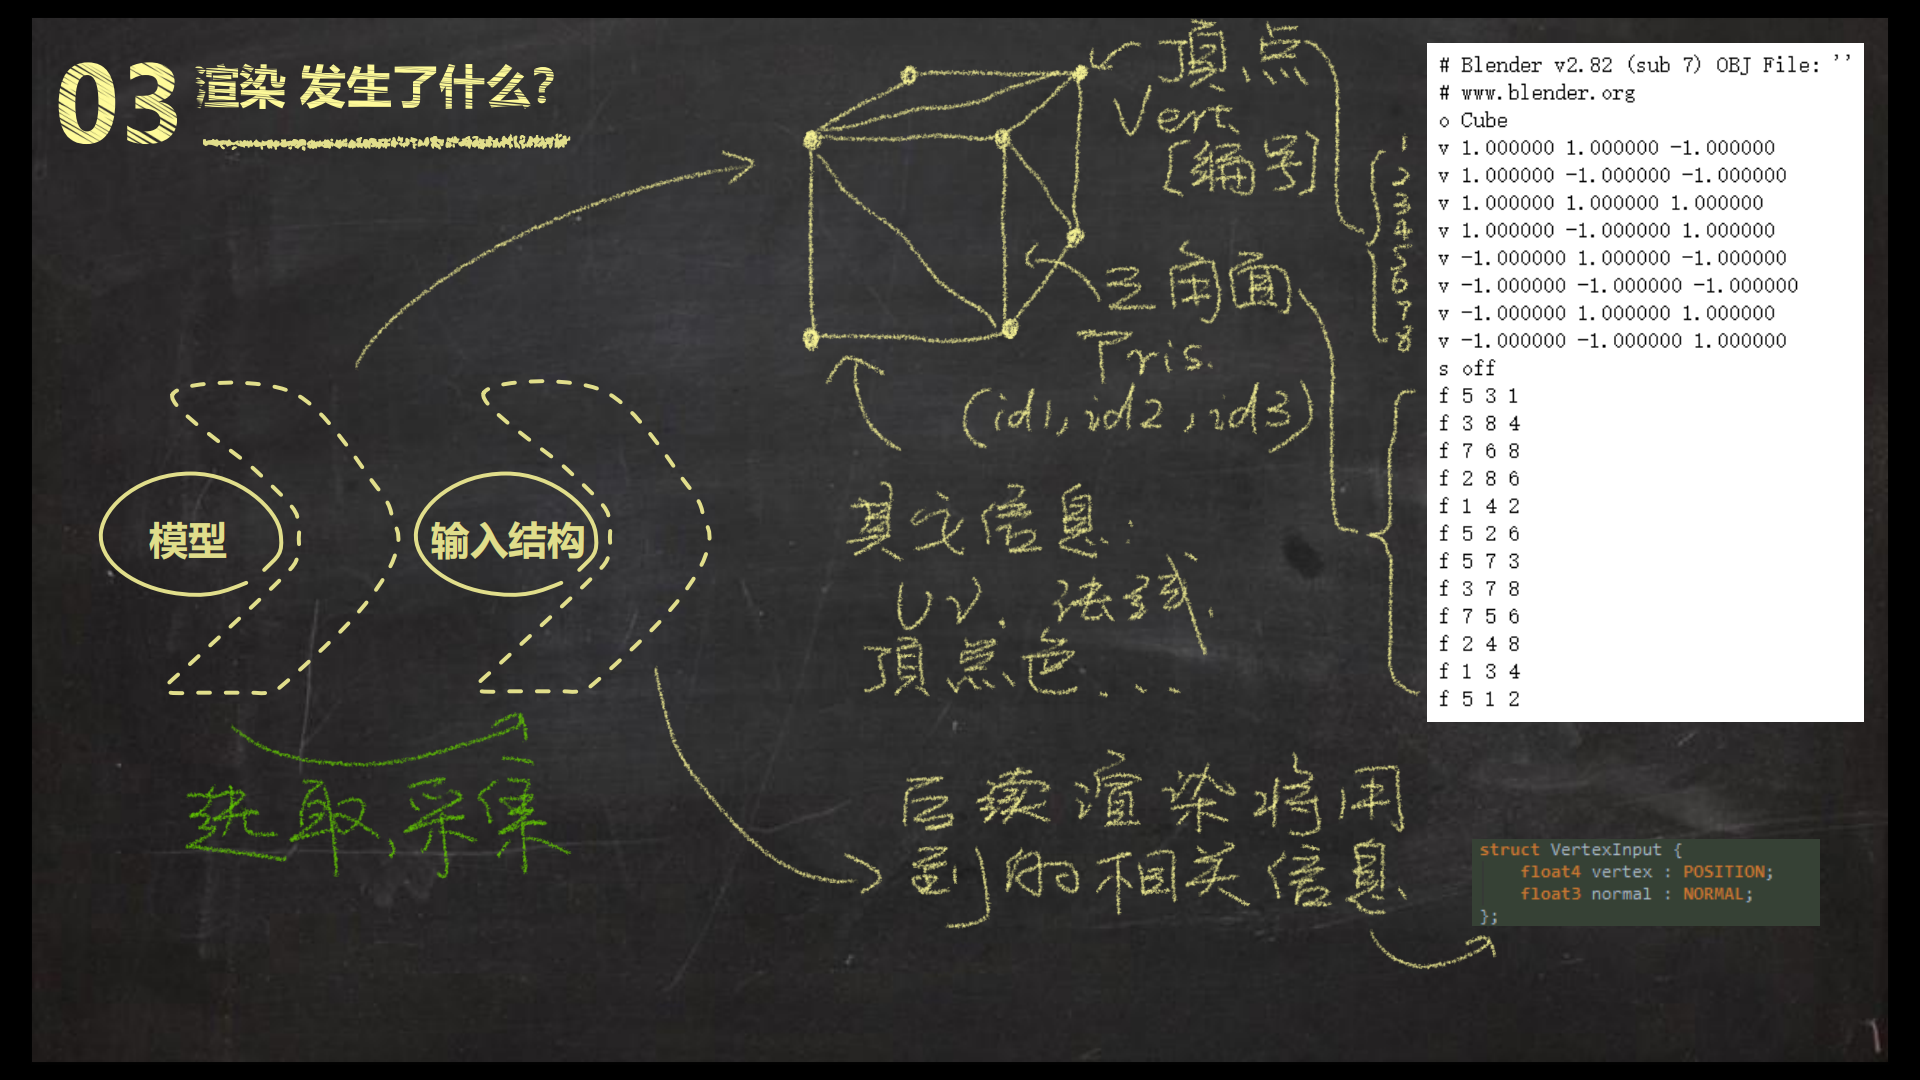 03 渲染 发生了什么?
模型
输入结构
选取,采集
頂点
Vert
[编号]
三角面
Tris.
(id1,id2,id3)
其它信息:
UV. 法线.
頂点色...
后续渲染将用
到的相关信息
1
2
3
4
5
6
7
8
# Blender v2.82 (sub 7) OBJ File: ''
# www.blender.org
o Cube
v 1.000000 1.000000 -1.000000
v 1.000000 -1.000000 -1.000000
v 1.000000 1.000000 1.000000
v 1.000000 -1.000000 1.000000
v -1.000000 1.000000 -1.000000
v -1.000000 -1.000000 -1.000000
v -1.000000 1.000000 1.000000
v -1.000000 -1.000000 1.000000
s off
f 5 3 1
f 3 8 4
f 7 6 8
f 2 8 6
f 1 4 2
f 5 2 6
f 5 7 3
f 3 7 8
f 7 5 6
f 2 4 8
f 1 3 4
f 5 1 2
struct VertexInput {
float4 vertex : POSITION;
float3 normal : NORMAL;
};